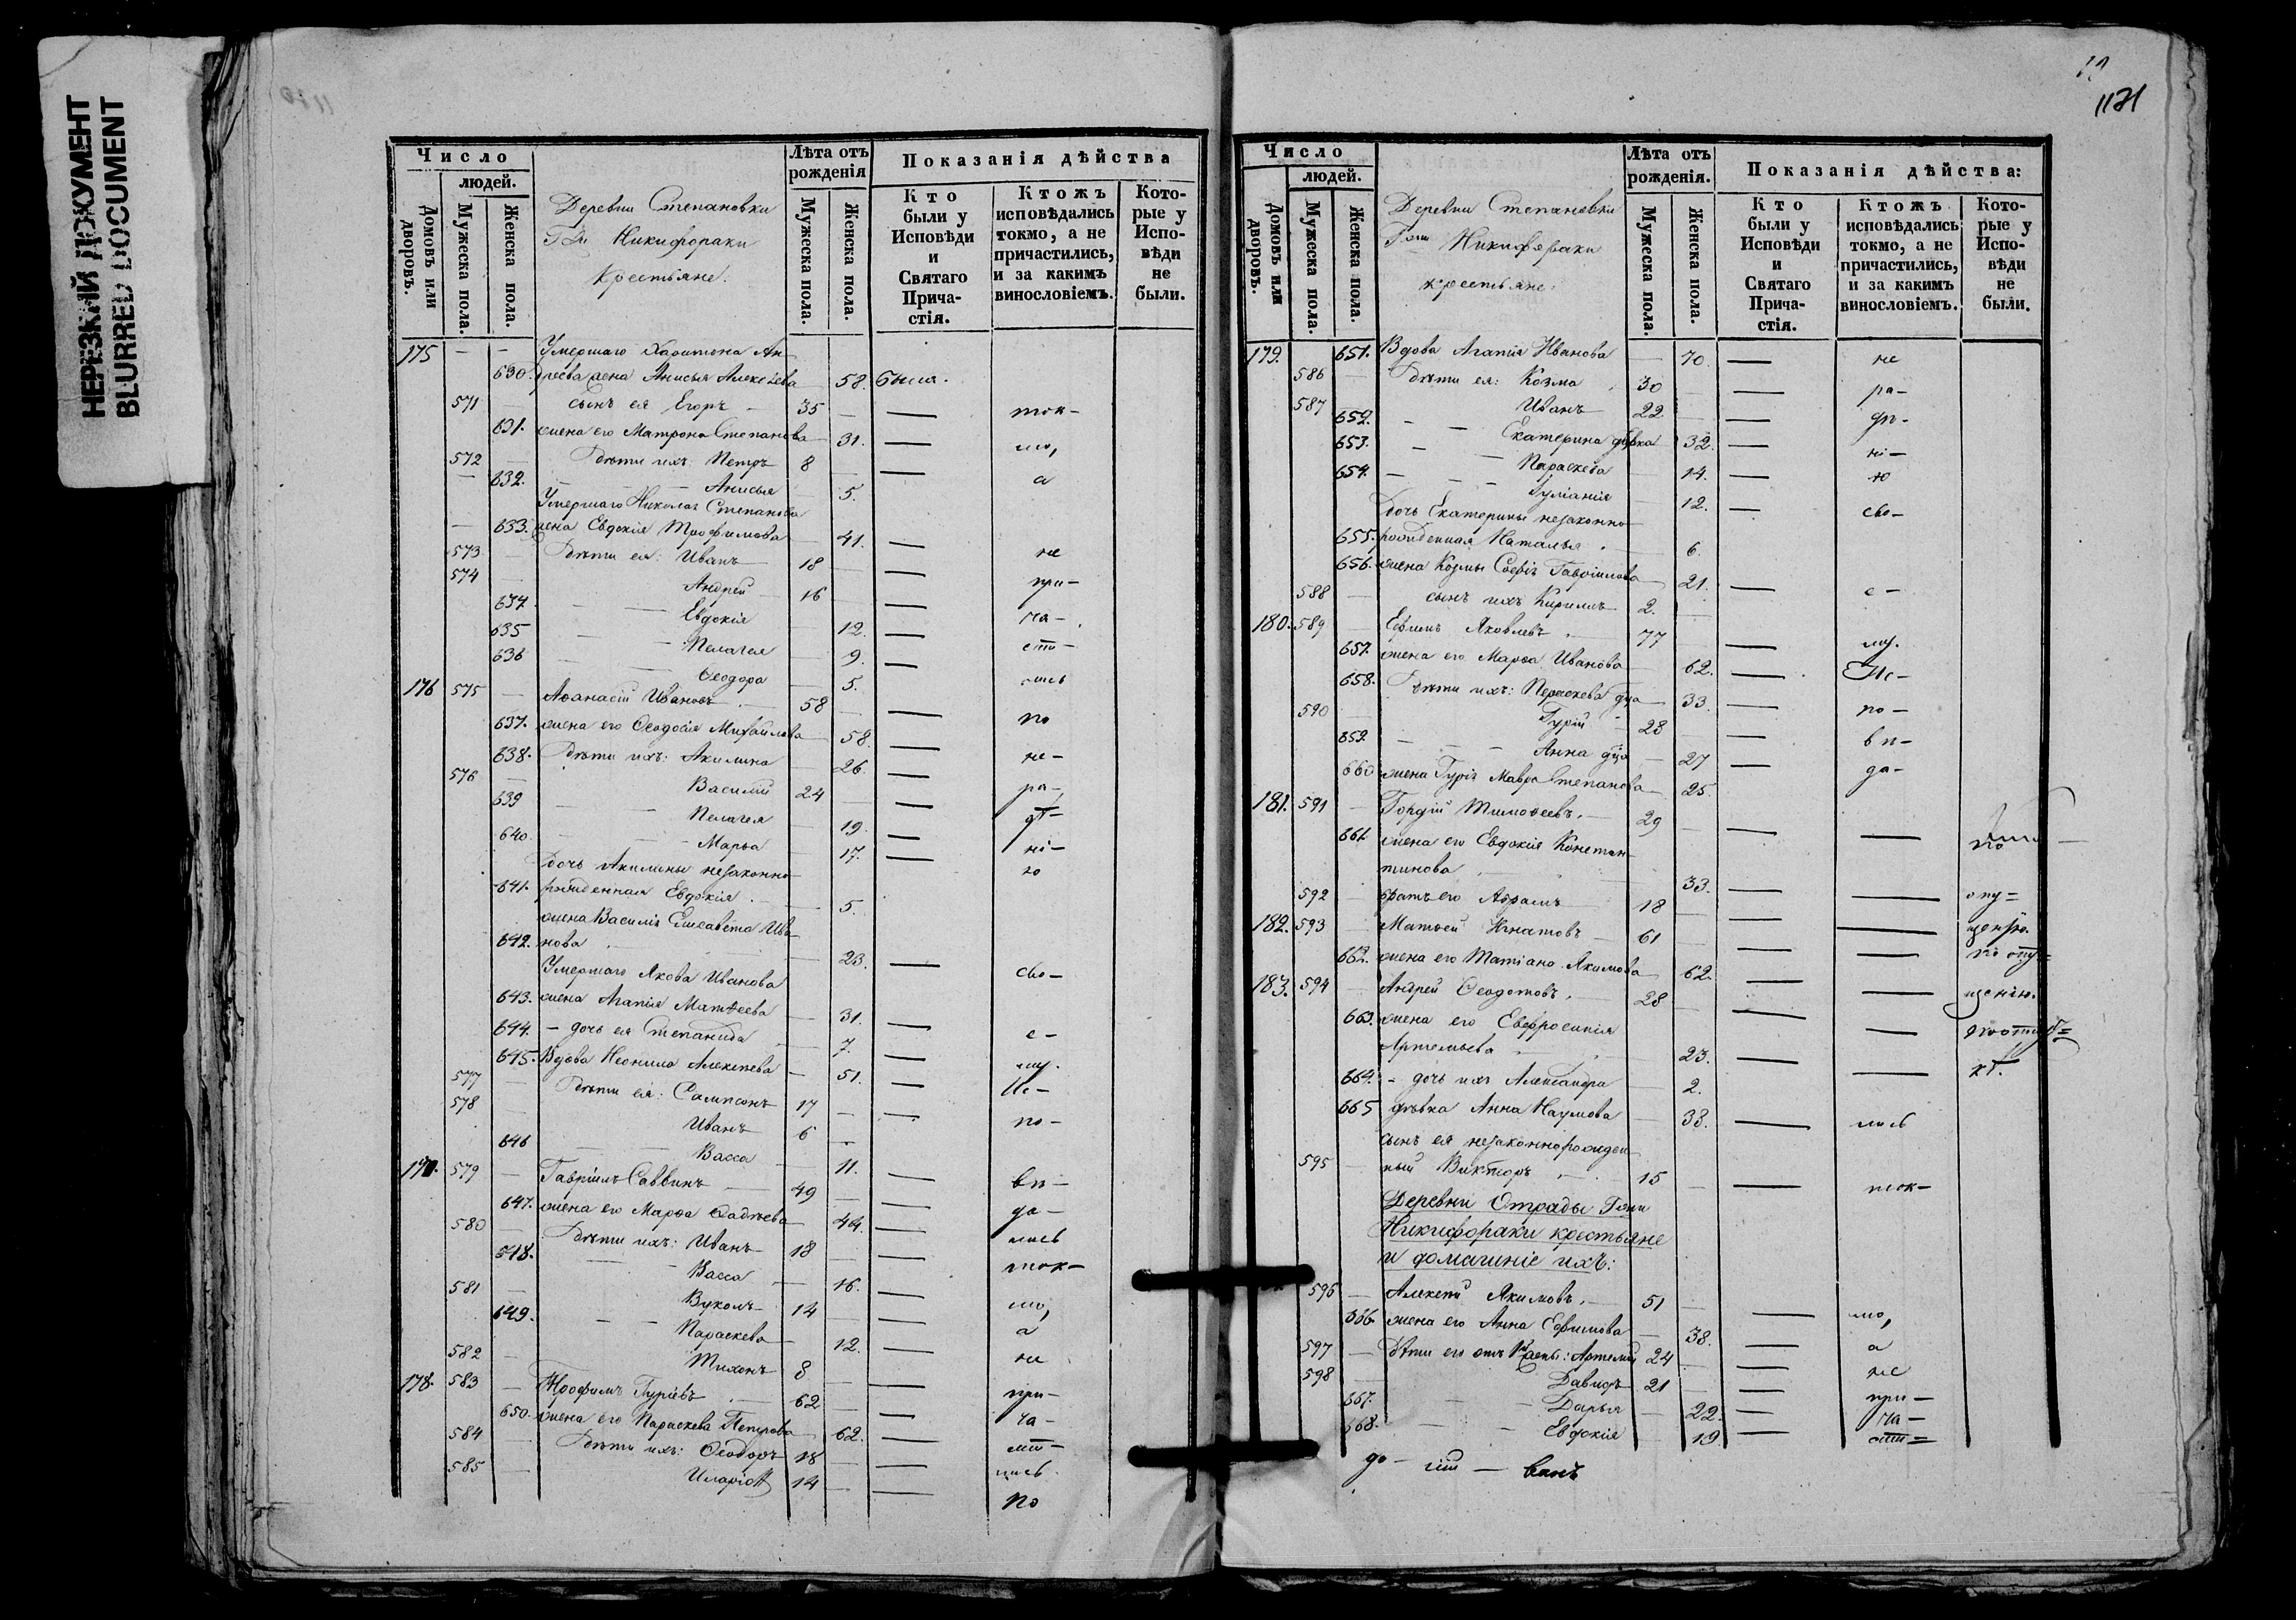 НЕРЕЗКИЙ ДОКУМЕНТ
BLURRED DOCUMENT
Число
людей.
Домовъ или дворовъ.
Мужеска пола.
Женска пола.
Деревни Степановки
Никифораки
Крестьяне.
Лѣта отъ рожденія
Мужеска пола.
Женска пола.
Показанія дѣйства
Кто были у Исповѣди и Святаго Прича-стія.
Ктожъ исповѣдались токмо, а не причастились, и за какимъ винословіемъ.
Кото-рые у Испо-вѣди не были.
175 — — Умершаго Харитона Ан-
630. дреева жена Анисья Алексѣева 58. была.
571 — сынъ ея Егоръ — 35 — — ток-
631. жена его Матрона Степанова 31. — мо,
572 — Дѣти ихъ: Петръ 8 — — а
632. — Анисья 5.
Умершаго Николая Степанова
633. жена Евдокія Трофимова 41. — не
573 — Дѣти ея: Иванъ 18 — — при-
574 — Андрей 16 — — ча-
634. — Евдокія 12. — сти-
635 — Пелагея 9. — лись
636 — Ѳеодора 5.
176 575 — Аѳанасій Ивановъ 58 — — по
637. жена его Ѳеодосія Михайлова 58. — не-
638. Дѣти ихъ: Акилина 26. — ра-
576 — Василій 24 — — дѣ-
639 — Пелагея 19. — ні-
640. — Марѳа 17. — ю
Дочь Акилины незаконно-
641. рожденная Евдокія 5.
жена Василія Елисавета Ива-
642. нова 23. — сво-
Умершаго Якова Иванова
643. жена Агапія Матѳеева 31. — е-
644. — дочь ея Степанида 7.
645. Вдова Неонила Алексѣева 51. — му.
577 — Дѣти ея: Сампсонъ 17 — — Ис-
578 — Иванъ 6 — по-
646 — Васса 11. — вѣ-
177. 579 — Гавріилъ Саввинъ 49 — — да-
647. жена его Марѳа Ѳадѣева 44. — лись
580 — Дѣти ихъ: Иванъ 18 — — ток-
548. — Васса 16. — мо,
581 — Вуколъ 14 — — а
649. — Параскева 12. — не
582 — Тихонъ 8 —
178. 583 — Трофимъ Гуріевъ 62 — — при-
650. жена его Параскева Петрова 62. — ча-
584 — Дѣти ихъ: Ѳеодоръ 18 — — сти-
585 — Иларіонъ 14 — — лись
по
1131
Число
людей.
Домовъ или дворовъ.
Мужеска пола.
Женска пола.
Деревни Степановки
Никифораки
крестьяне.
Лѣта отъ рожденія.
Мужеска пола.
Женска пола.
Показанія дѣйства:
Кто были у Исповѣди и Святаго Прича-стія.
Ктожъ исповѣдались токмо, а не причастились, и за какимъ винословіемъ.
Кото-рые у Испо-вѣди не были.
179. 651. Вдова Агапія Иванова 70. — не
586 — Дѣти ея: Козма 30 — — ра-
587 Иванъ 22 — дѣ-
652. — Екатерина дѣвка 32. — ні-
653. — Параскева 14. — ю
654. — Іуліанія 12. — сво-
Дочь Екатерины незаконно
655. рожденная Наталья 6.
656. жена Козмы Софія Гавріилова 21. — е-
588 — сынъ ихъ Кириллъ 2.
180. 589 — Ефимъ Яковлевъ 77 — му.
657. жена его Марѳа Иванова 62. — Ис-
658. Дѣти ихъ: Параскева 33. — по-
590 — Гурій 28 — вѣ-
659. — Анна 27 — да-
660 жена Гурія Мавра Степанова 25.
181. 591 — Гордій Тимоѳеевъ. 29 — — — по
661. жена его Евдокія Констан-
тинова 33. — — опу-
592 братъ его Абрамъ 18 — — щенію.
182. 593 — Матвей Игнатовъ 61 — — по опу-
662. жена его Татіана Якимова 62. — — щенію.
183. 594 — Андрей Ѳеодотовъ. 28 — —
663. жена его Евфросинія
Артемьева 23. —
664. — дочь ихъ Александра 2.
665 дѣвка Анна Наумова 33. — лись
сынъ ея незаконнорожден-
595 — ный Викторъ 15 — — ток-
Деревни Отрады
Никифораки крестьяне
и домашніе ихъ:
596 — Алексѣй Якимовъ. 51 — — мо,
666 жена его Анна Ефимова 38. — а
597 — Дѣти его отъ : Артемій 24 — не
598 — Давидъ 21 — при-
667. — Дарья 22. — ча-
668. — Евдокія 19. — сти-
до — сти — ванъ